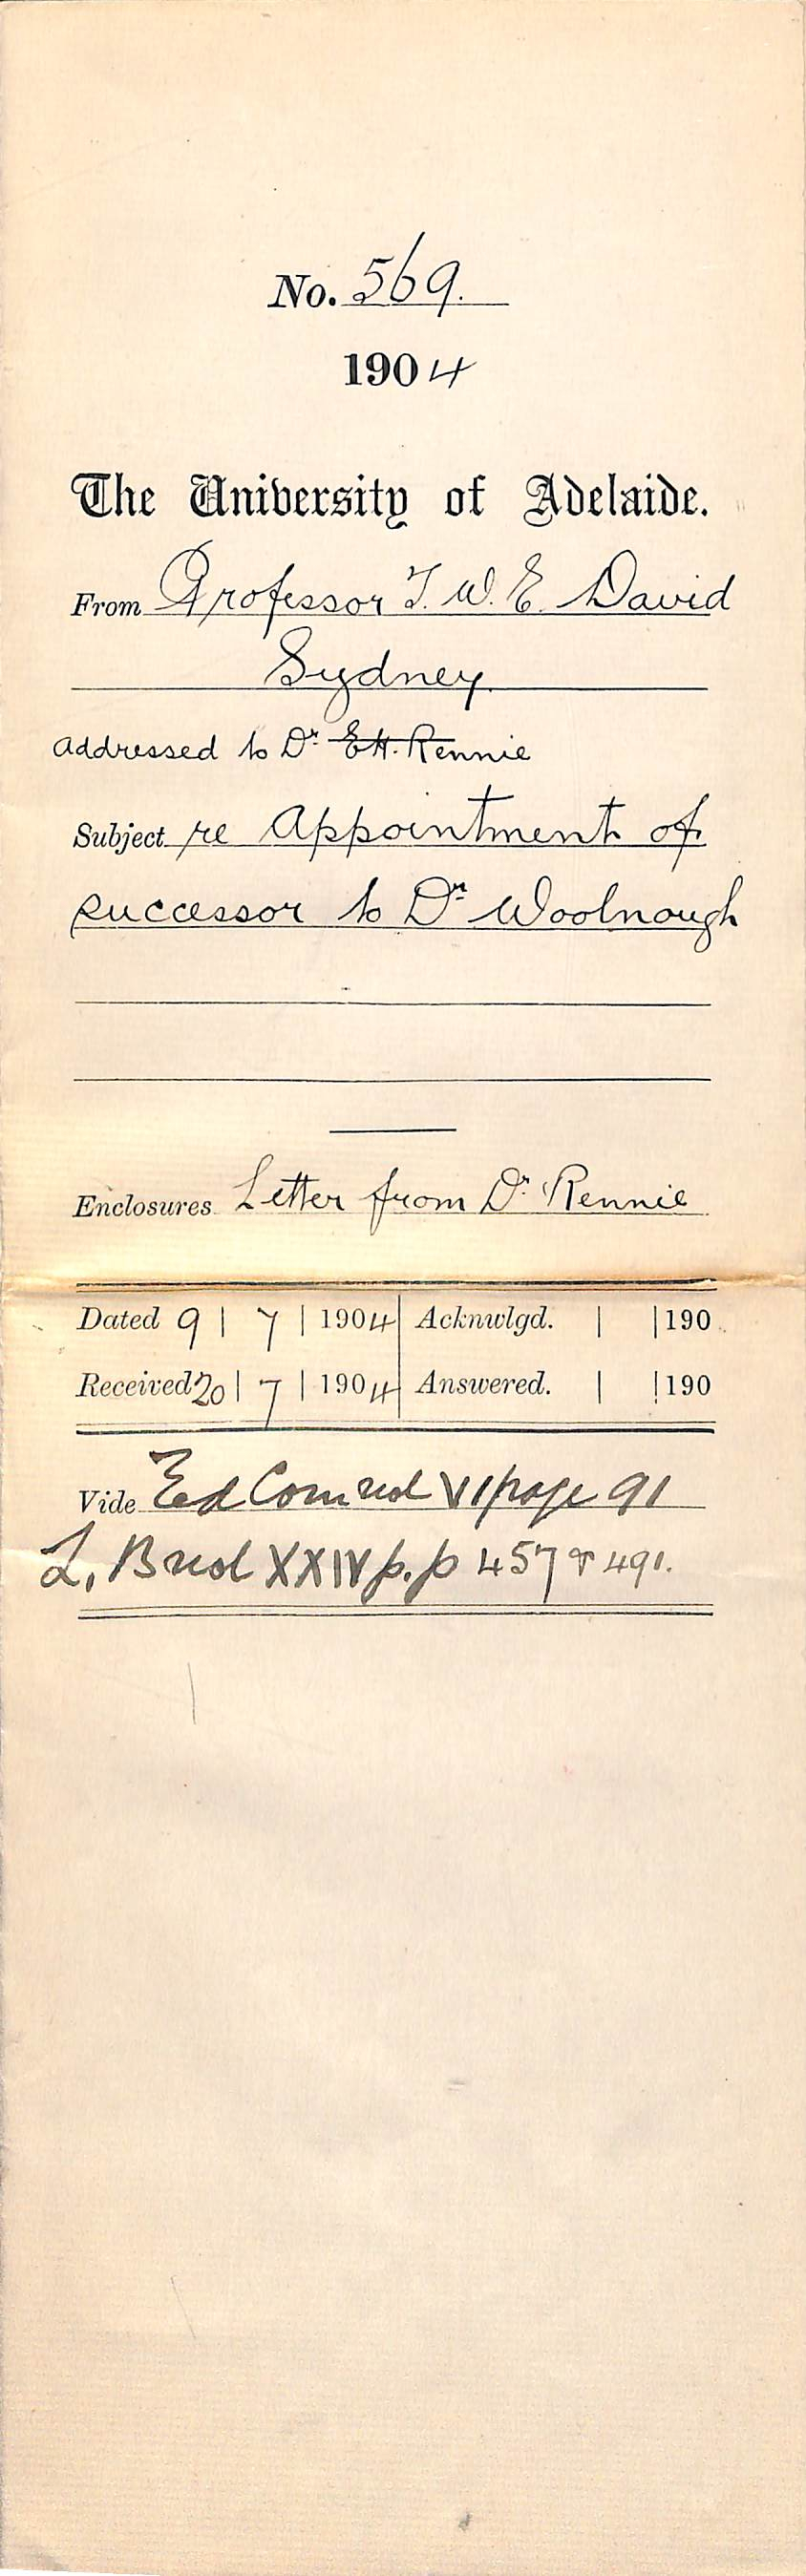 No. 569.
1904
The University of Adelaide.
From Professor T. W. E. David
Sydney.
addressed to Dr. E.H. Rennie
Subject re Appointment of
successor to Dr. Woolnough
Enclosures Letter from Dr. Rennie
Dated 9 | 7 | 1904 Acknwlgd. | | 190
Received 20 | 7 | 1904 Answered. | | 190
Vide Ed Com vol VI page 91
L, B vol XXIV p.p 457 & 491.